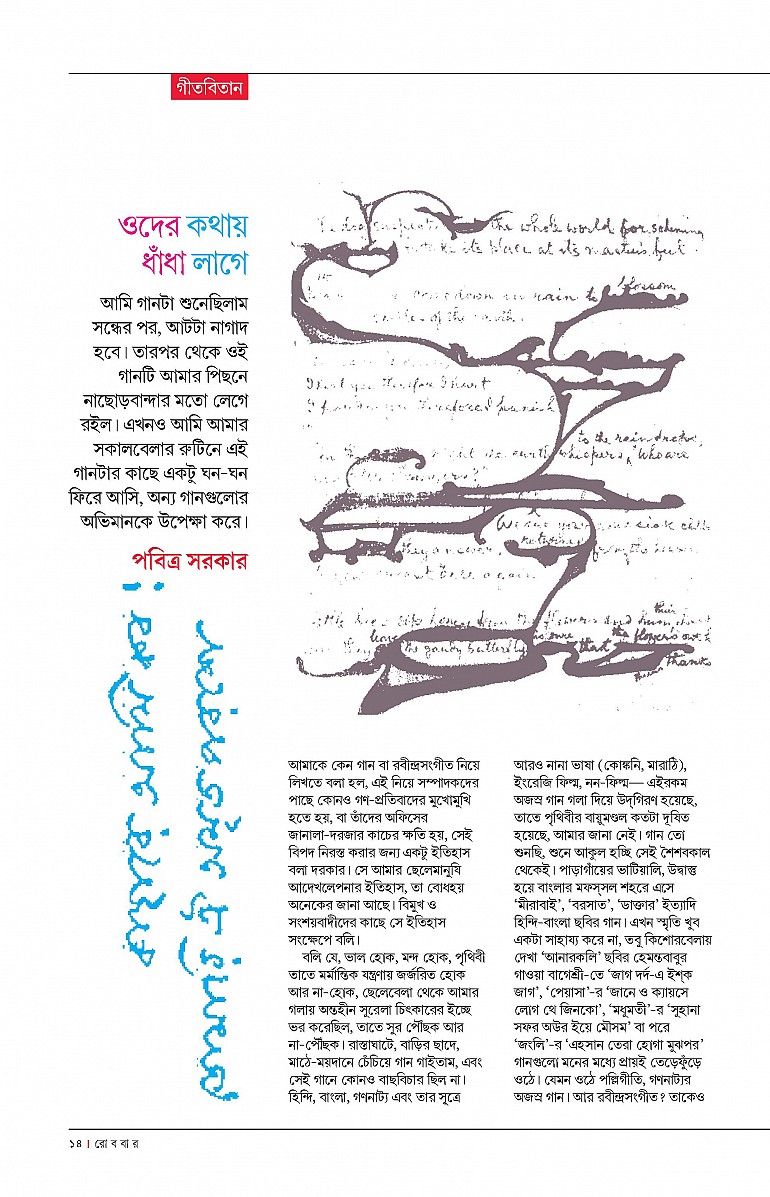 গীতবিতান
ওদের কথায়
ধাঁধা লাগে
আমি গানটা শুনেছিলাম
সন্ধের পর, আটটা নাগাদ
হবে। তারপর থেকে ওই
গানটি আমার পিছনে
নাছোড়বান্দার মতো লেগে
রইল। এখনও আমি আমার
সকালবেলার রুটিনে এই
গানটার কাছে একটু ঘন-ঘন
ফিরে আসি, অন্য গানগুলোর
অভিমানকে উপেক্ষা করে।
পবিত্র সরকার
the whole world for
its place at its master's feet
down in rain to blossom
of the earth.
to the raindrops,
whispers, who are
the flowers and
the gaudy butterfly is sure that the flowers owe
thanks
আমাকে কেন গান বা রবীন্দ্রসংগীত নিয়ে
লিখতে বলা হল, এই নিয়ে সম্পাদকদের
পাছে কোনও গণ-প্রতিবাদের মুখোমুখি
হতে হয়, বা তাঁদের অফিসের
জানালা-দরজার কাচের ক্ষতি হয়, সেই
বিপদ নিরস্ত করার জন্য একটু ইতিহাস
বলা দরকার। সে আমার ছেলেমানুষি
আদেখলেপনার ইতিহাস, তা বোধহয়
অনেকের জানা আছে। বিমুখ ও
সংশয়বাদীদের কাছে সে ইতিহাস
সংক্ষেপে বলি।
বলি যে, ভাল হোক, মন্দ হোক, পৃথিবী
তাতে মর্মান্তিক যন্ত্রণায় জর্জরিত হোক
আর না-হোক, ছেলেবেলা থেকে আমার
গলায় অন্তহীন সুরেলা চিৎকারের ইচ্ছে
ভর করেছিল, তাতে সুর পৌঁছক আর
না-পৌঁছক। রাস্তাঘাটে, বাড়ির ছাদে,
মাঠে-ময়দানে চেঁচিয়ে গান গাইতাম, এবং
সেই গানে কোনও বাছবিচার ছিল না।
হিন্দি, বাংলা, গণনাট্য এবং তার সূত্রে
আরও নানা ভাষা (কোঙ্কনি, মারাঠি),
ইংরেজি ফিল্ম, নন-ফিল্ম— এইরকম
অজস্র গান গলা দিয়ে উদ্‌গিরণ হয়েছে,
তাতে পৃথিবীর বায়ুমণ্ডল কতটা দূষিত
হয়েছে, আমার জানা নেই। গান তো
শুনছি, শুনে আকুল হচ্ছি সেই শৈশবকাল
থেকেই। পাড়াগাঁয়ের ভাটিয়ালি, উদ্বাস্তু
হয়ে বাংলার মফস্‌সল শহরে এসে
‘মীরাবাই’, ‘বরসাত’, ‘ডাক্তার’ ইত্যাদি
হিন্দি-বাংলা ছবির গান। এখন স্মৃতি খুব
একটা সাহায্য করে না, তবু কিশোরবেলায়
দেখা ‘আনারকলি’ ছবির হেমন্তবাবুর
গাওয়া বাগেশ্রী-তে ‘জাগ দর্দ-এ ইশ্‌ক
জাগ’, ‘পেয়াসা’-র ‘জানে ও ক্যায়সে
লোগ থে জিনকো’, ‘মধুমতী’-র ‘সুহানা
সফর অউর ইয়ে মৌসম’ বা পরে
‘জংলি’-র ‘এহসান তেরা হোগা মুঝপর’
গানগুলো মনের মধ্যে প্রায়ই তেড়েফুঁড়ে
ওঠে। যেমন ওঠে পল্লিগীতি, গণনাট্যর
অজস্র গান। আর রবীন্দ্রসংগীত? তাকেও
১৪ । রো ব বা র